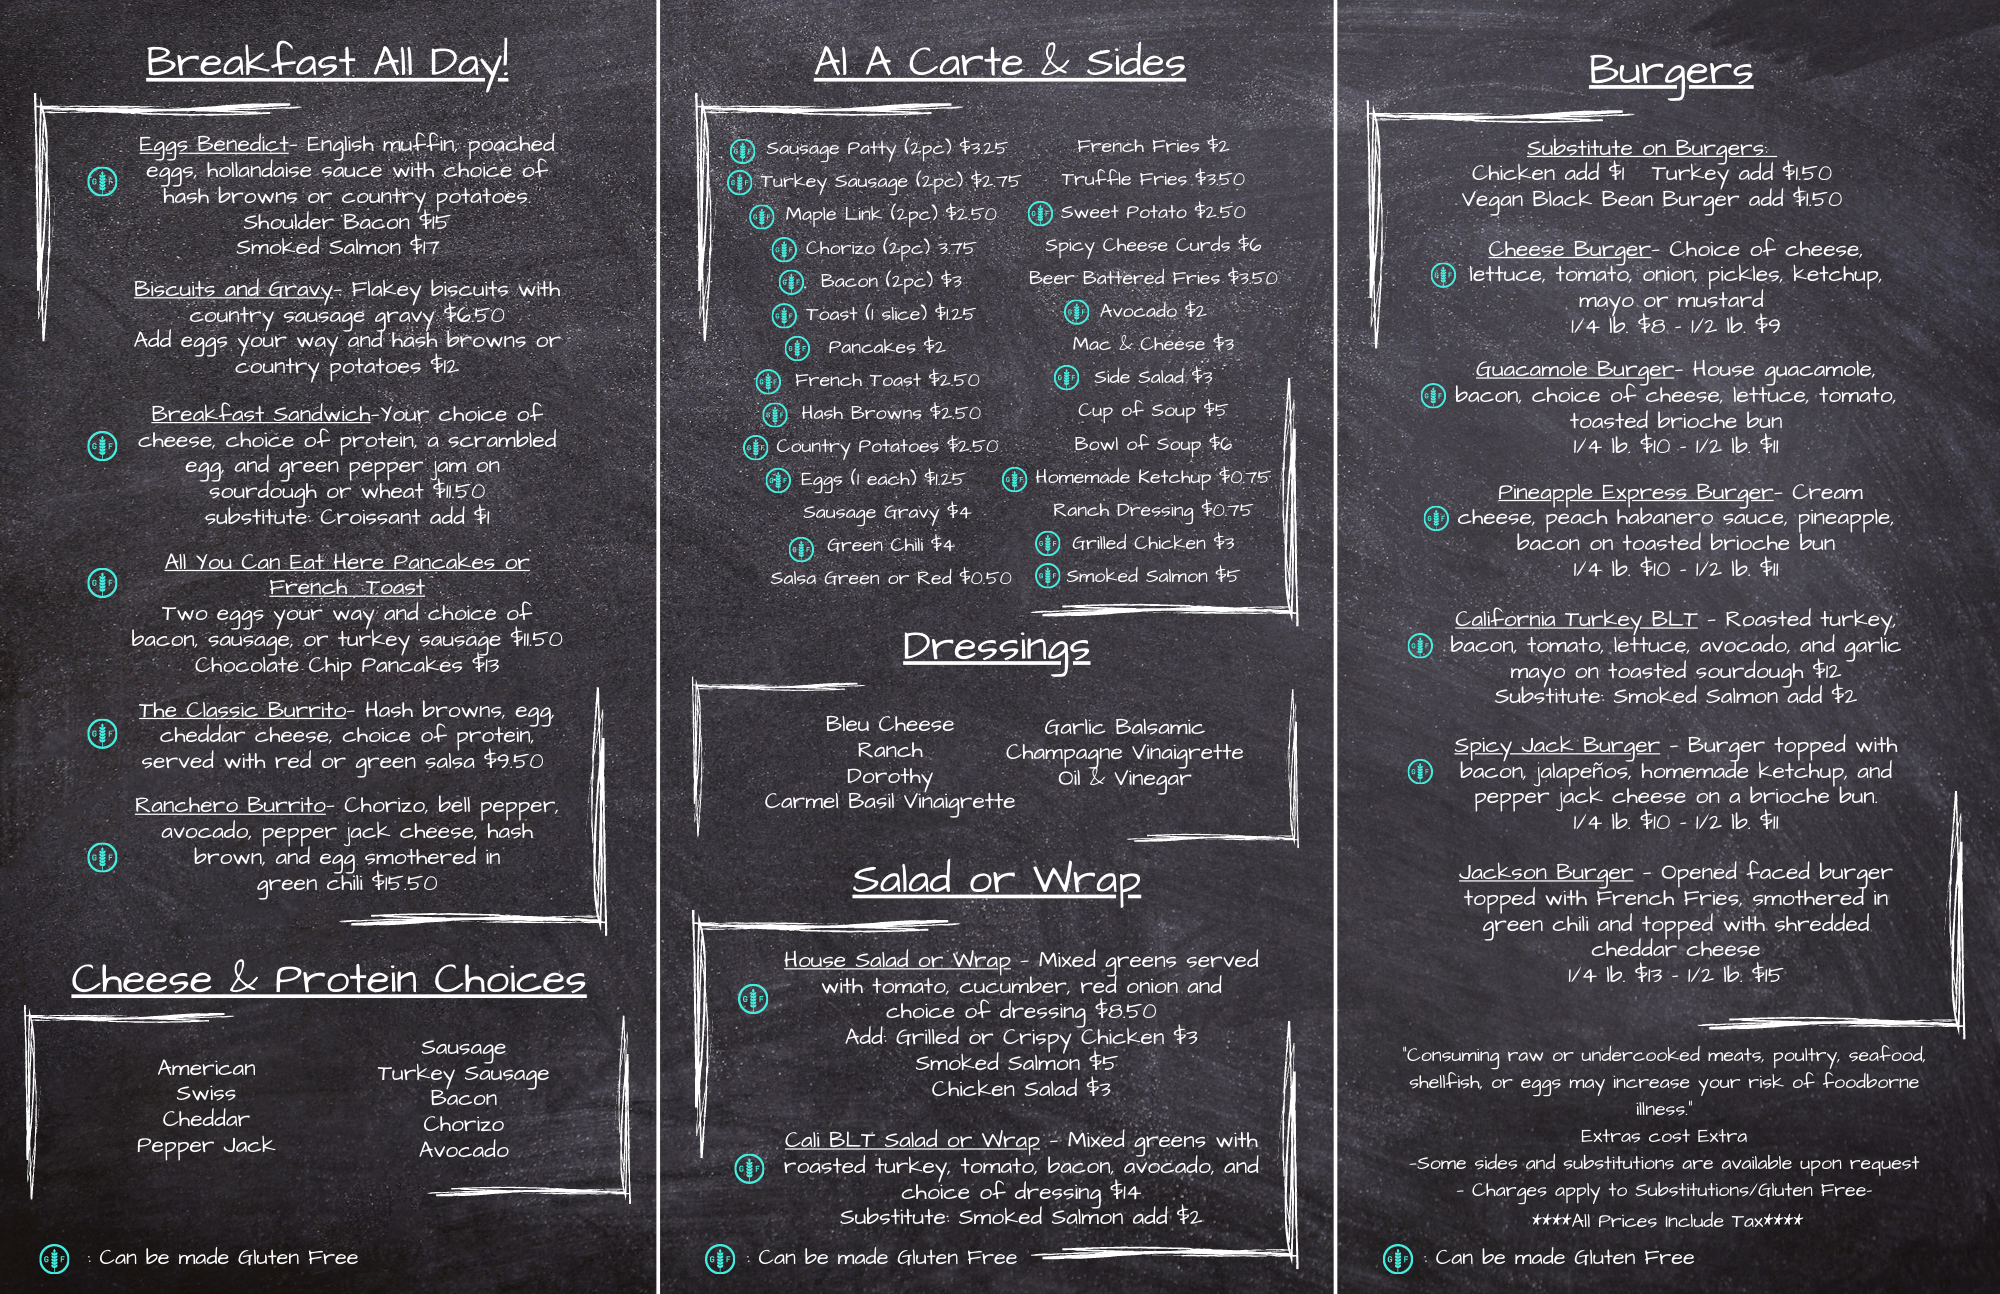 Breakfast All Day!
Eggs Benedict- English muffin, poached
eggs, hollandaise sauce with choice of
hash browns or country potatoes.
Shoulder Bacon $15
Smoked Salmon $17
Biscuits and Gravy- Flakey biscuits with
country sausage gravy $6.50
Add eggs your way and hash browns or
country potatoes $12
Breakfast Sandwich-Your choice of
cheese, choice of protein, a scrambled
egg, and green pepper jam on
sourdough or wheat $11.50
substitute: Croissant add $1
All You Can Eat Here Pancakes or
French Toast
Two eggs your way and choice of
bacon, sausage, or turkey sausage $11.50
Chocolate Chip Pancakes $13
The Classic Burrito- Hash browns, egg,
cheddar cheese, choice of protein,
served with red or green salsa $9.50
Ranchero Burrito- Chorizo, bell pepper,
avocado, pepper jack cheese, hash
brown, and egg smothered in
green chili $15.50
Cheese & Protein Choices
American
Swiss
Cheddar
Pepper Jack
Sausage
Turkey Sausage
Bacon
Chorizo
Avocado
GF : Can be made Gluten Free
Al A Carte & Sides
Sausage Patty (2pc) $3.25
Turkey Sausage (2pc) $2.75
Maple Link (2pc) $2.50
Chorizo (2pc) 3.75
Bacon (2pc) $3
Toast (1 slice) $1.25
Pancakes $2
French Toast $2.50
Hash Browns $2.50
Country Potatoes $2.50
Eggs (1 each) $1.25
Sausage Gravy $4
Green Chili $4
Salsa Green or Red $0.50
French Fries $2
Truffle Fries $3.50
Sweet Potato $2.50
Spicy Cheese Curds $6
Beer Battered Fries $3.50
Avocado $2
Mac & Cheese $3
Side Salad $3
Cup of Soup $5
Bowl of Soup $6
Homemade Ketchup $0.75
Ranch Dressing $0.75
Grilled Chicken $3
Smoked Salmon $5
Dressings
Bleu Cheese
Ranch
Dorothy
Carmel Basil Vinaigrette
Garlic Balsamic
Champagne Vinaigrette
Oil & Vinegar
Salad or Wrap
House Salad or Wrap - Mixed greens served
with tomato, cucumber, red onion and
choice of dressing $8.50
Add: Grilled or Crispy Chicken $3
Smoked Salmon $5
Chicken Salad $3
Cali BLT Salad or Wrap - Mixed greens with
roasted turkey, tomato, bacon, avocado, and
choice of dressing $14
Substitute: Smoked Salmon add $2
GF : Can be made Gluten Free
Burgers
Substitute on Burgers:
Chicken add $1 Turkey add $1.50
Vegan Black Bean Burger add $1.50
Cheese Burger- Choice of cheese,
lettuce, tomato, onion, pickles, ketchup,
mayo or mustard
1/4 lb. $8 - 1/2 lb. $9
Guacamole Burger- House guacamole,
bacon, choice of cheese, lettuce, tomato,
toasted brioche bun
1/4 lb. $10 - 1/2 lb. $11
Pineapple Express Burger- Cream
cheese, peach habanero sauce, pineapple,
bacon on toasted brioche bun
1/4 lb. $10 - 1/2 lb. $11
California Turkey BLT - Roasted turkey,
bacon, tomato, lettuce, avocado, and garlic
mayo on toasted sourdough $12
Substitute: Smoked Salmon add $2
Spicy Jack Burger - Burger topped with
bacon, jalapeños, homemade ketchup, and
pepper jack cheese on a brioche bun.
1/4 lb. $10 - 1/2 lb. $11
Jackson Burger - Opened faced burger
topped with French Fries, smothered in
green chili and topped with shredded
cheddar cheese
1/4 lb. $13 - 1/2 lb. $15
"Consuming raw or undercooked meats, poultry, seafood,
shellfish, or eggs may increase your risk of foodborne
illness."
Extras cost Extra
-Some sides and substitutions are available upon request
- Charges apply to Substitutions/Gluten Free-
****All Prices Include Tax****
GF : Can be made Gluten Free